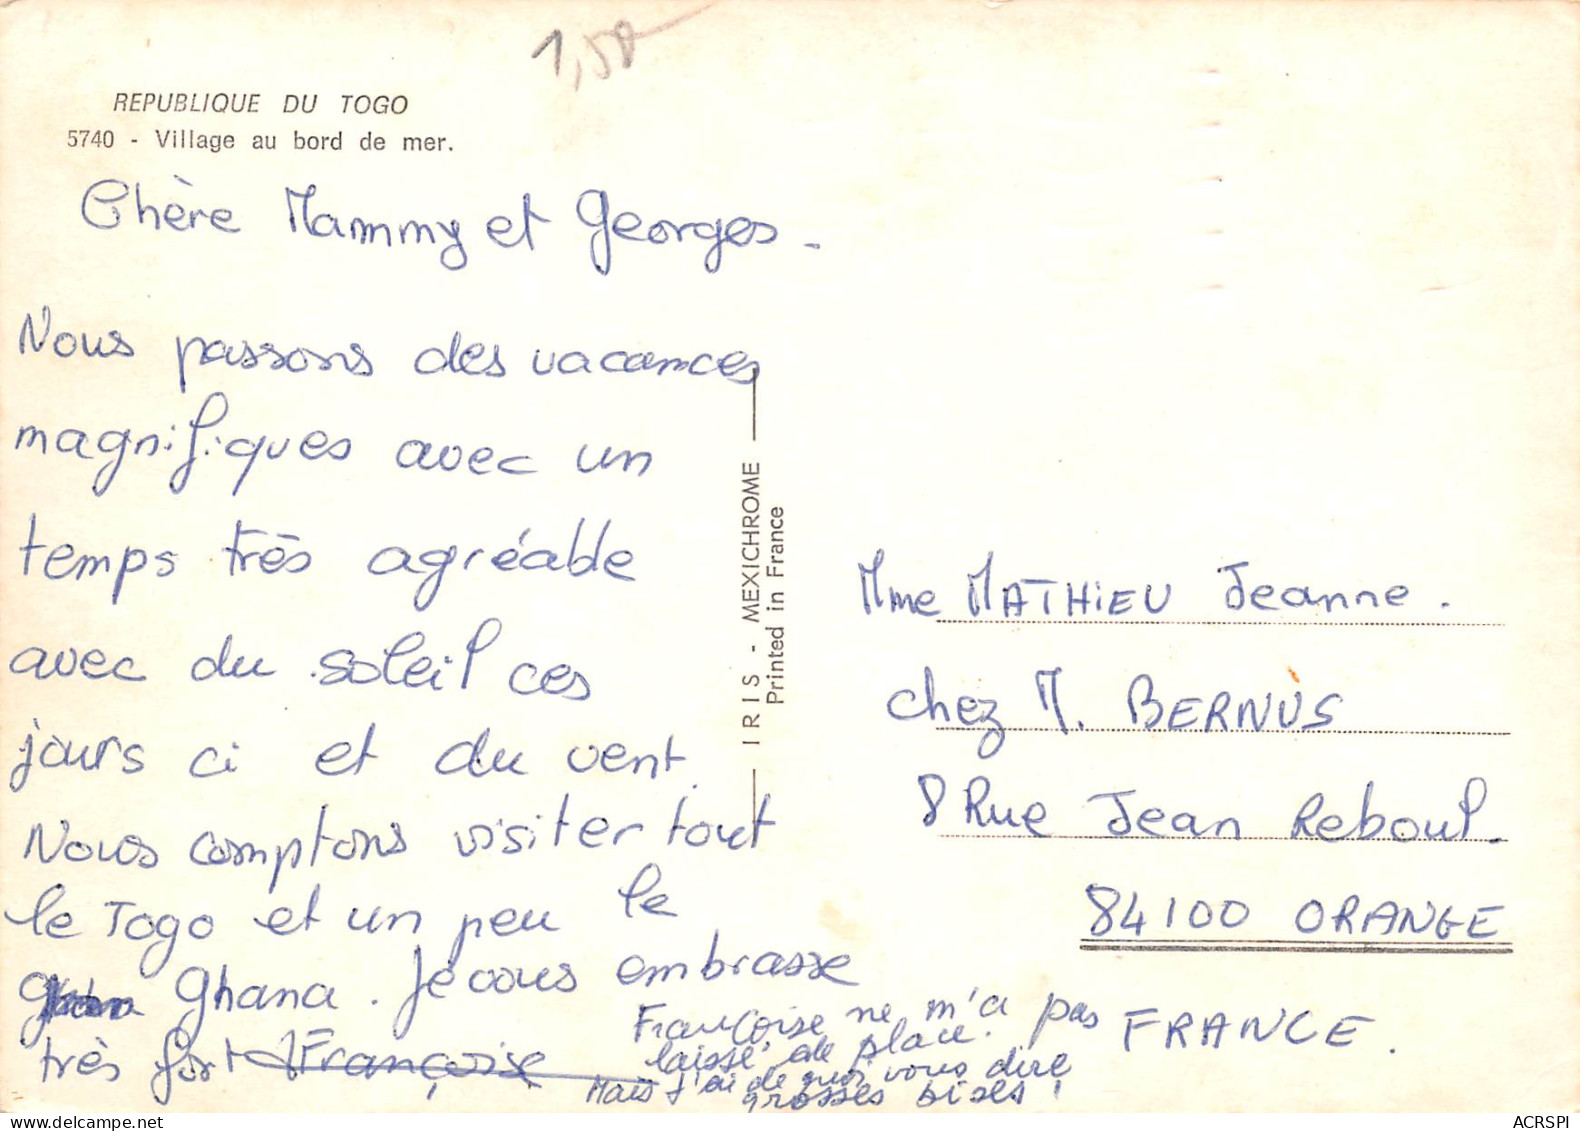 1,50
REPUBLIQUE DU TOGO
5740 - Village au bord de mer.
Chère Mammy et Georges.
Nous passons des vacances
magnifiques avec un
temps très agréable
avec du soleil ces
jours ci et du vent.
Nous comptons visiter tout
le Togo et un peu le
Ghana. Je vous embrasse
très fort Françoise
Françoise ne m'a pas
laissé de place.
Mais j'ai de quoi vous dire
grosses bises !
IRIS - MEXICHROME
Printed in France
Mme MATHIEU Jeanne.
chez M. BERNUS
8 Rue Jean Reboul.
84100 ORANGE
FRANCE.
delcampe.net
ACRSPI